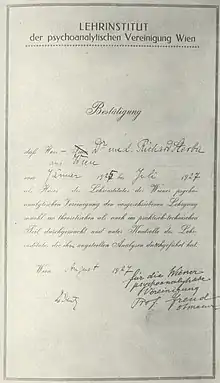 LEHRINSTITUT
der psychoanalytischen Vereinigung Wien
Bestätigung
daß Herr – Frau Dr med. Richard Sterba
aus Wien
von Jänner 1925 bis Juli 1927
als Hörer des Lehrinstitutes der Wiener psycho-
analytischen Vereinigung den vorgeschriebenen Lehrgang
sowohl im theoretischen als auch im praktisch-technischen
Teil durchgemacht und unter Kontrolle des Lehr-
institutes die ihm zugeteilten Analysen durchgeführt hat.
Wien, August 1927
für die Wiener
psychoanalytische
Vereinigung
Prof. Freud
Obmann
H. Deutsch